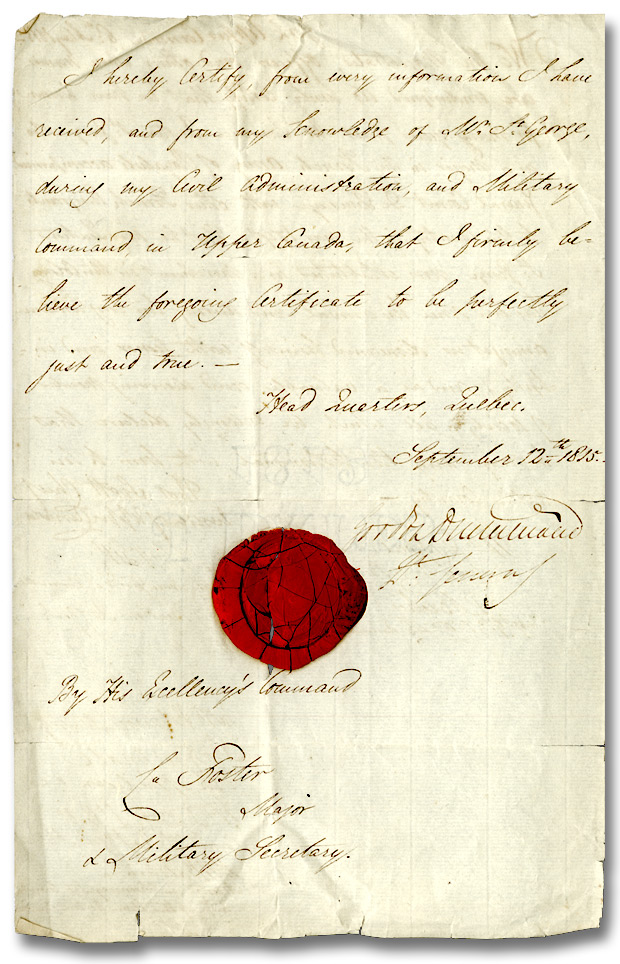 I hereby Certify, from every information I have
received, and from my knowledge of Mr. St. George,
during my Civil Administration, and Military
Command, in Upper Canada, that I firmly be-
lieve the foregoing Certificate to be perfectly
just and true. —
Head Quarters, Quebec.
September 12th 1815.
Gordon Drummond
Lt. General
By His Excellency's Command
Foster
Major
& Military Secretary.